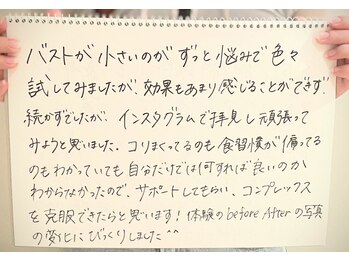 バストが小さいのがずっと悩みで色々
試してみましたが、効果もあまり感じることができず、
続かずでしたが、インスタグラムで拝見し頑張って
みようと思いました。コリまくってるのも食習慣が偏ってる
のもわかっていても自分だけでは何すれば良いのか
わからなかったので、サポートしてもらい、コンプレックス
を克服できたらと思います！体験のbefore Afterの写真
の変化にびっくりしました^^